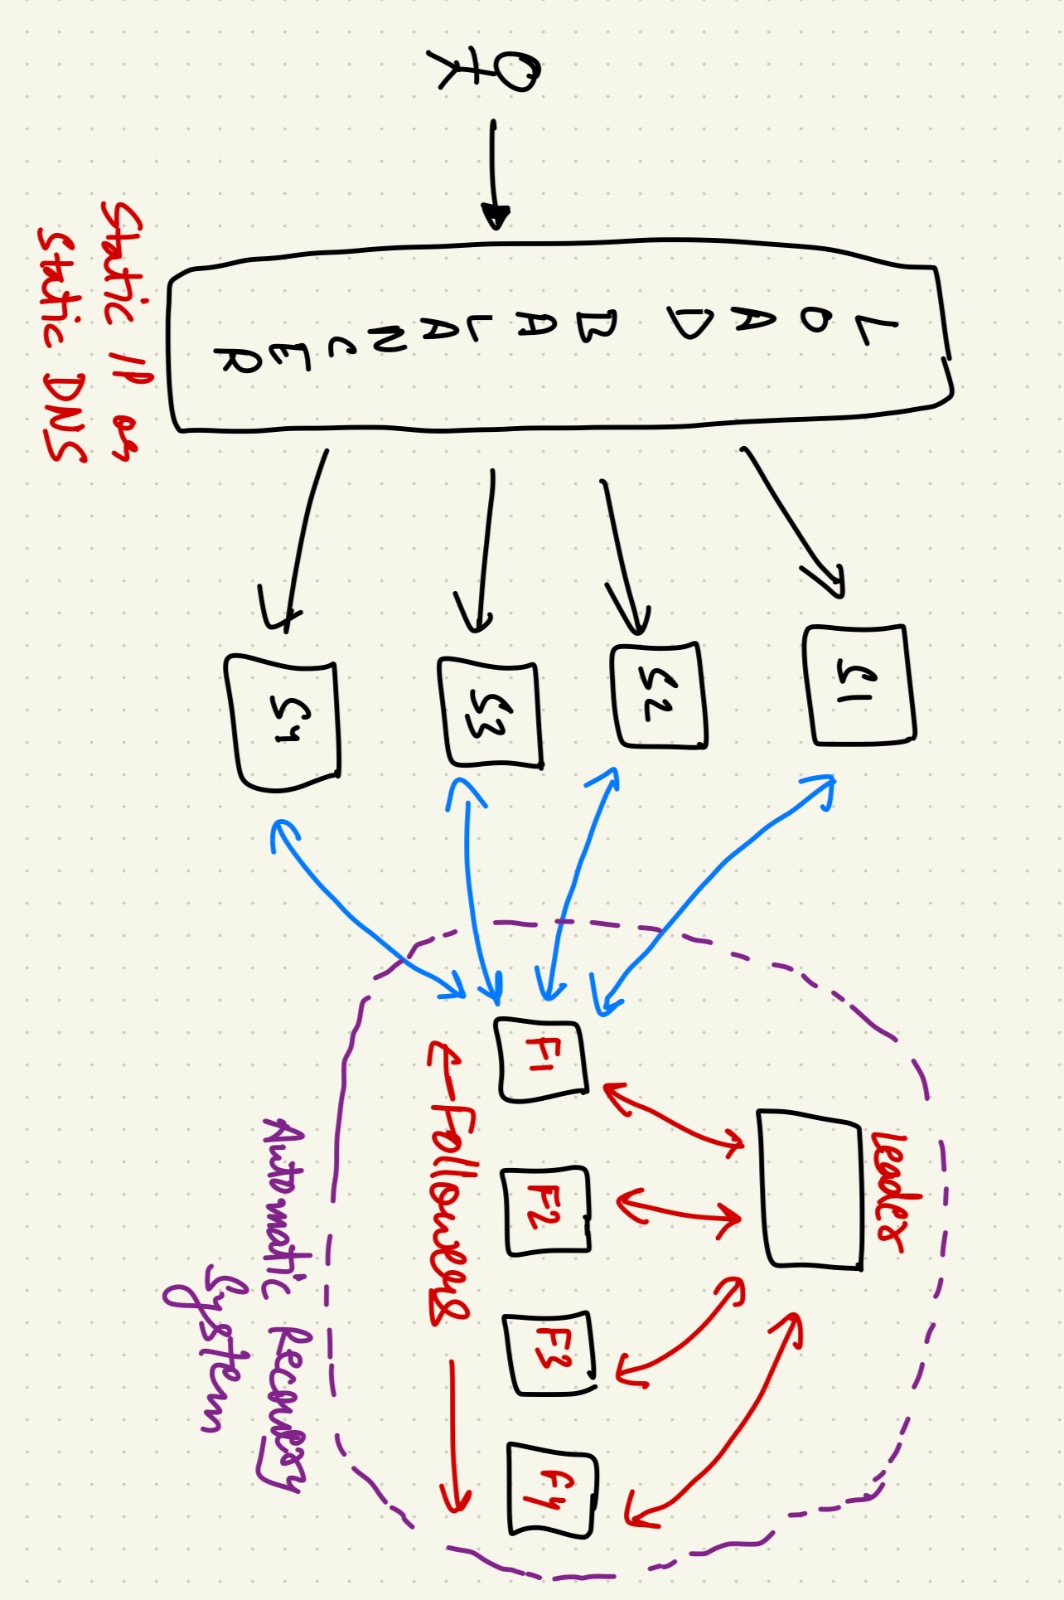 LOAD BALANCER
Static IP or
Static DNS
S1
S2
S3
S4
Leader
F1
F2
F3
F4
Followers
Automatic Recovery
System